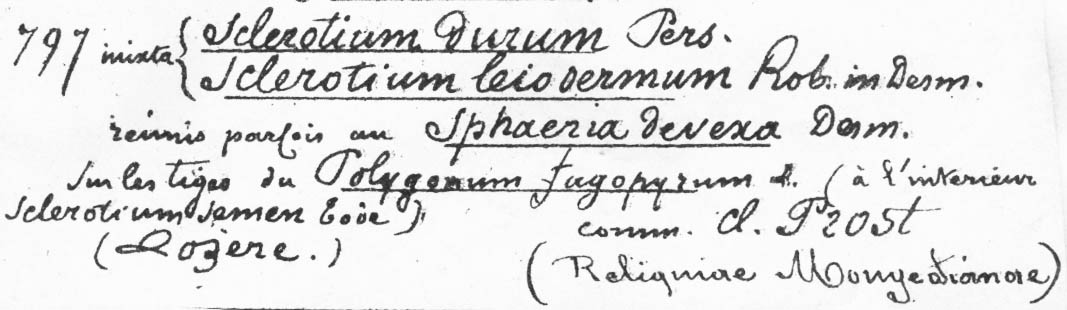 797 mixta { Sclerotium durum Pers.
Sclerotium leiodermum Rob. in Desm.
réunis parfois au Sphaeria devexa Desm.
Sur les tiges du Polygonum fagopyrum L. (à l'interieur
Sclerotium Semen Tode)
comm. cl. Prost
(Lozère.)
(Reliquiae Mougeotianae)